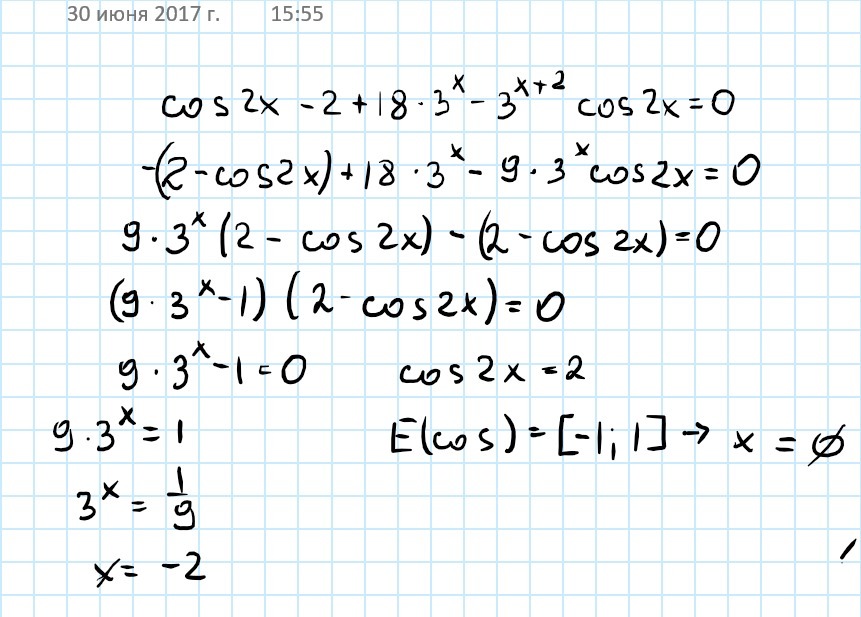 30 июня 2017 г. 15:55
cos 2x - 2 + 18 · 3^x - 3^(x+2) cos 2x = 0
-(2 - cos 2x) + 18 · 3^x - 9 · 3^x cos 2x = 0
9 · 3^x (2 - cos 2x) - (2 - cos 2x) = 0
(9 · 3^x - 1) (2 - cos 2x) = 0
9 · 3^x - 1 = 0 cos 2x = 2
9 · 3^x = 1 E(cos) = [-1; 1] → x = ∅
3^x = 1/9
x = -2